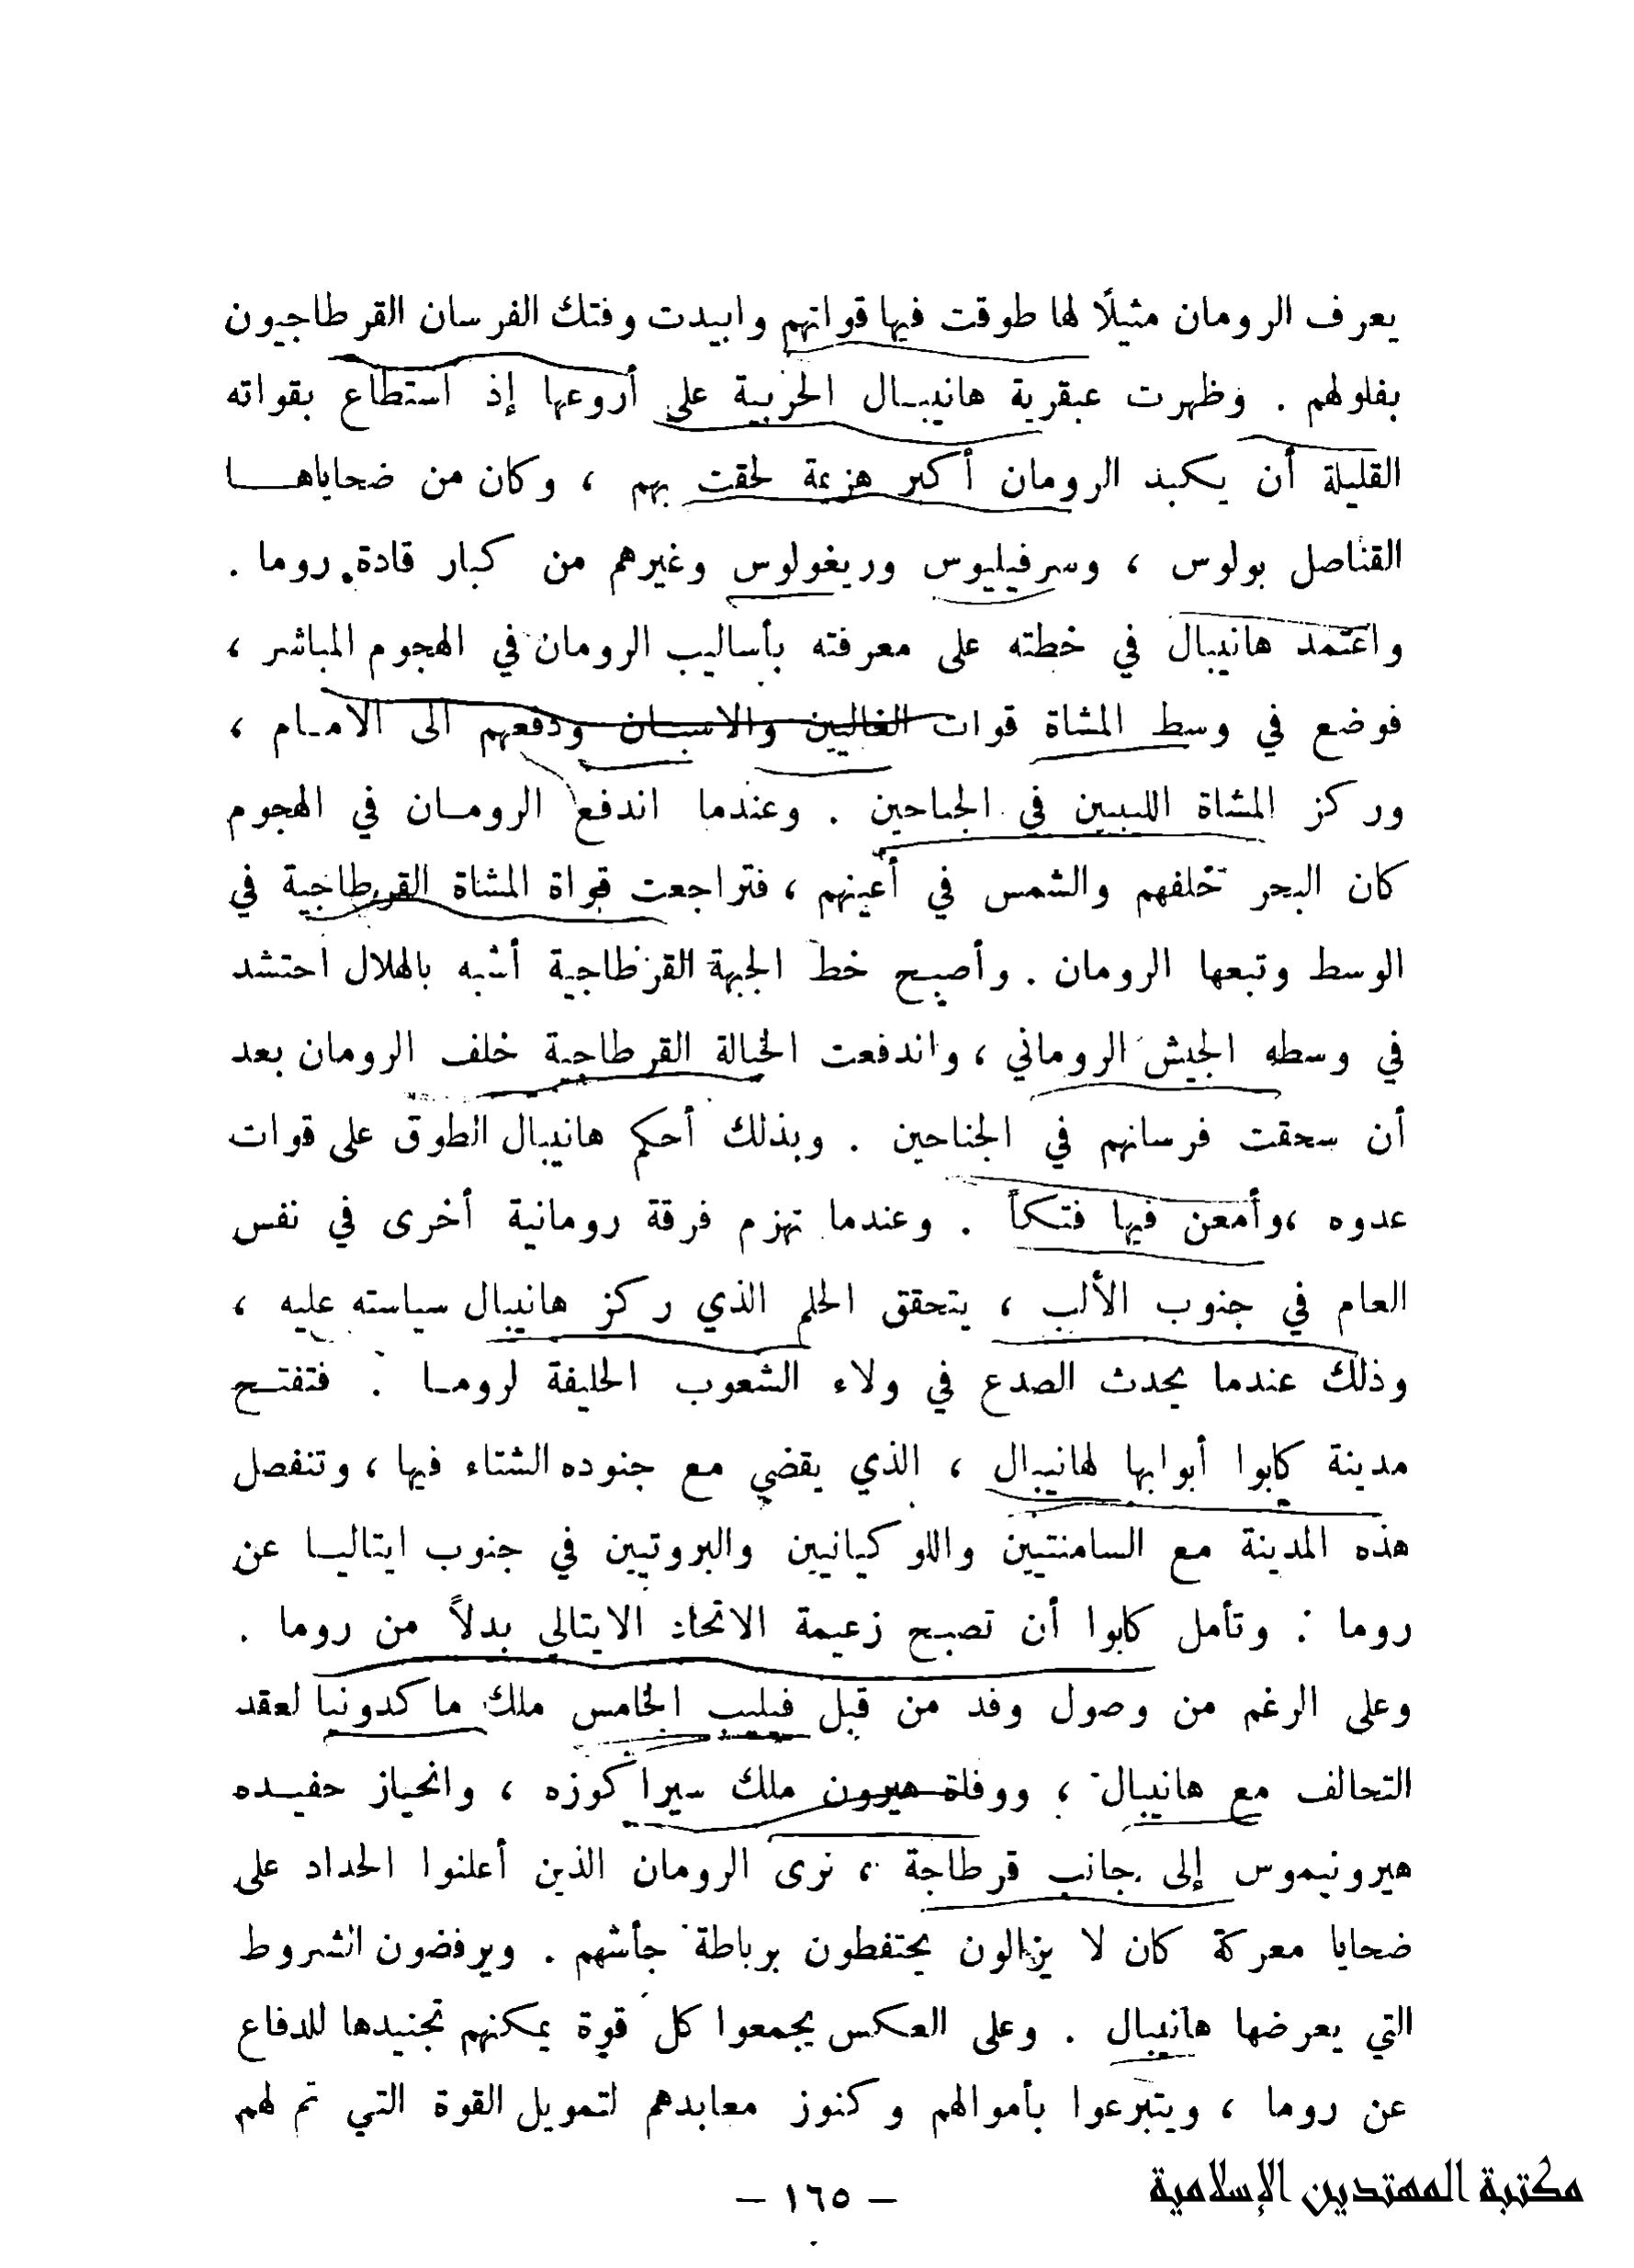 يعرف الرومان مثيلًا لها طوقت فيها قواتهم وابيدت وفتك الفرسان القرطاجيون
بفلولهم . وظهرت عبقرية هانيبـال الحربية على أروعها إذ استطاع بقواته
القليلة أن يكبد الرومان أكبر هزيمة لحقت بهم ، وكان من ضحاياهـــا
القناصل بولوس ، وسرفيليوس وريغولوس وغيرهم من كبار قادة روما .
واعتمد هانيبال في خطته على معرفته بأساليب الرومان في الهجوم المباشر ،
فوضع في وسط المشاة قوات الغاليين والاسبـان ودفعهم الى الامـام ،
وركز المشاة الليبيين في الجناحين . وعندما اندفع الرومـان في الهجوم
كان البحر خلفهم والشمس في أعينهم ، فتراجعت قواة المشاة القرطاجية في
الوسط وتبعها الرومان . وأصبح خط الجبهة القرطاجية أشبه بالهلال احتشد
في وسطه الجيش الروماني ، واندفعت الخيالة القرطاجية خلف الرومان بعد
أن سحقت فرسانهم في الجناحين . وبذلك أحكم هانيبال الطوق على قوات
عدوه ،وأمعن فيها فتكاً . وعندما تهزم فرقة رومانية أخرى في نفس
العام في جنوب الألب ، يتحقق الحلم الذي ركز هانيبال سياسته عليه ،
وذلك عندما يحدث الصدع في ولاء الشعوب الحليفة لرومـا : فتفتـح
مدينة كابوا أبوابها لهانيبال ، الذي يقضي مع جنوده الشتاء فيها ، وتنفصل
هذه المدينة مع السامنتيين واللوكيانيين والبروتيين في جنوب ايتاليـا عن
روما : وتأمل كابوا أن تصبح زعيمة الاتحاد الايتالي بدلاً من روما .
وعلى الرغم من وصول وفد من قبل فيليب الخامس ملك ماكدونيا لعقد
التحالف مع هانيبال ، ووفاة هيرون ملك سيراكوزه ، وانحياز حفيـده
هيرونيموس إلى جانب قرطاجة ، نرى الرومان الذين أعلنوا الحداد على
ضحايا معركة كان لا يزالون يحتفطون برباطة جأشهم . ويرفضون الشروط
التي يعرضها هانيبال . وعلى العكس يجمعوا كل قوة يمكنهم تجنيدها للدفاع
عن روما ، ويتبرعوا بأموالهم وكنوز معابدهم لتمويل القوة التي تم لهم
– ١٦٥ –
مكتبة المهتدين الإسلامية